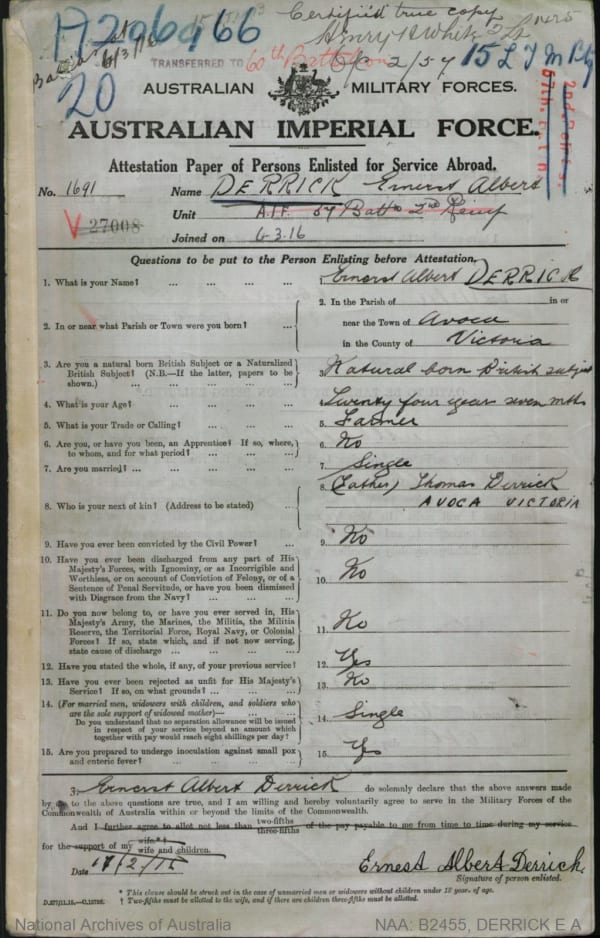 Certified true copy
Henry H White 2 Lt
TRANSFERRED TO 60th Battalion
15 L T M Bty
20
AUSTRALIAN MILITARY FORCES.
AUSTRALIAN IMPERIAL FORCE.
Attestation Paper of Persons Enlisted for Service Abroad.
No. 1691 Name DERRICK Ernest Albert
V 27008 Unit A.I.F. 57 Battn 2nd Reinf
Joined on 6.3.16
Questions to be put to the Person Enlisting before Attestation.
1. What is your Name? ... ... ... ... 1. Ernest Albert DERRICK
2. In or near what Parish or Town were you born? ... 2. In the Parish of in or
near the Town of Avoca
in the County of Victoria
3. Are you a natural born British Subject or a Naturalized
British Subject? (N.B.—If the latter, papers to be
shown.) ... ... ... ... ... 3. Natural born British subject
4. What is your Age? ... ... ... ... 4. Twenty four years seven mths
5. What is your Trade or Calling? ... ... ... 5. Farmer
6. Are you, or have you been, an Apprentice? If so, where,
to whom, and for what period? ... ... ... 6. No
7. Are you married? ... ... ... ... ... 7. Single
8. Who is your next of kin? (Address to be stated) ... 8. (Father) Thomas Derrick
AVOCA VICTORIA
9. Have you ever been convicted by the Civil Power? ... 9. No
10. Have you ever been discharged from any part of His
Majesty's Forces, with Ignominy, or as Incorrigible and
Worthless, or on account of Conviction of Felony, or of a
Sentence of Penal Servitude, or have you been dismissed
with Disgrace from the Navy? ... ... ... 10. No
11. Do you now belong to, or have you ever served in, His
Majesty's Army, the Marines, the Militia, the Militia
Reserve, the Territorial Force, Royal Navy, or Colonial
Forces? If so, state which, and if not now serving,
state cause of discharge ... ... ... ... 11. No
12. Have you stated the whole, if any, of your previous service? 12. Yes
13. Have you ever been rejected as unfit for His Majesty's
Service? If so, on what grounds? ... ... ... 13. No
14. (For married men, widowers with children, and soldiers who
are the sole support of widowed mother)—
Do you understand that no separation allowance will be issued
in respect of your service beyond an amount which
together with pay would reach eight shillings per day? ... 14. Single
15. Are you prepared to undergo inoculation against small pox
and enteric fever? ... ... ... ... 15. Yes
I, Ernest Albert Derrick do solemnly declare that the above answers made
by me to the above questions are true, and I am willing and hereby voluntarily agree to serve in the Military Forces of the
Commonwealth of Australia within or beyond the limits of the Commonwealth.
And I further agree to allot not less than two-fifths three-fifths of the pay payable to me from time to time during my service
for the support of my wife*† wife and children.
Date 17/2/16
Ernest Albert Derrick
Signature of person enlisted.
* This clause should be struck out in the case of unmarried men or widowers without children under 18 years of age.
† Two-fifths must be allotted to the wife, and if there are children three-fifths must be allotted.
National Archives of Australia
NAA: B2455, DERRICK E A